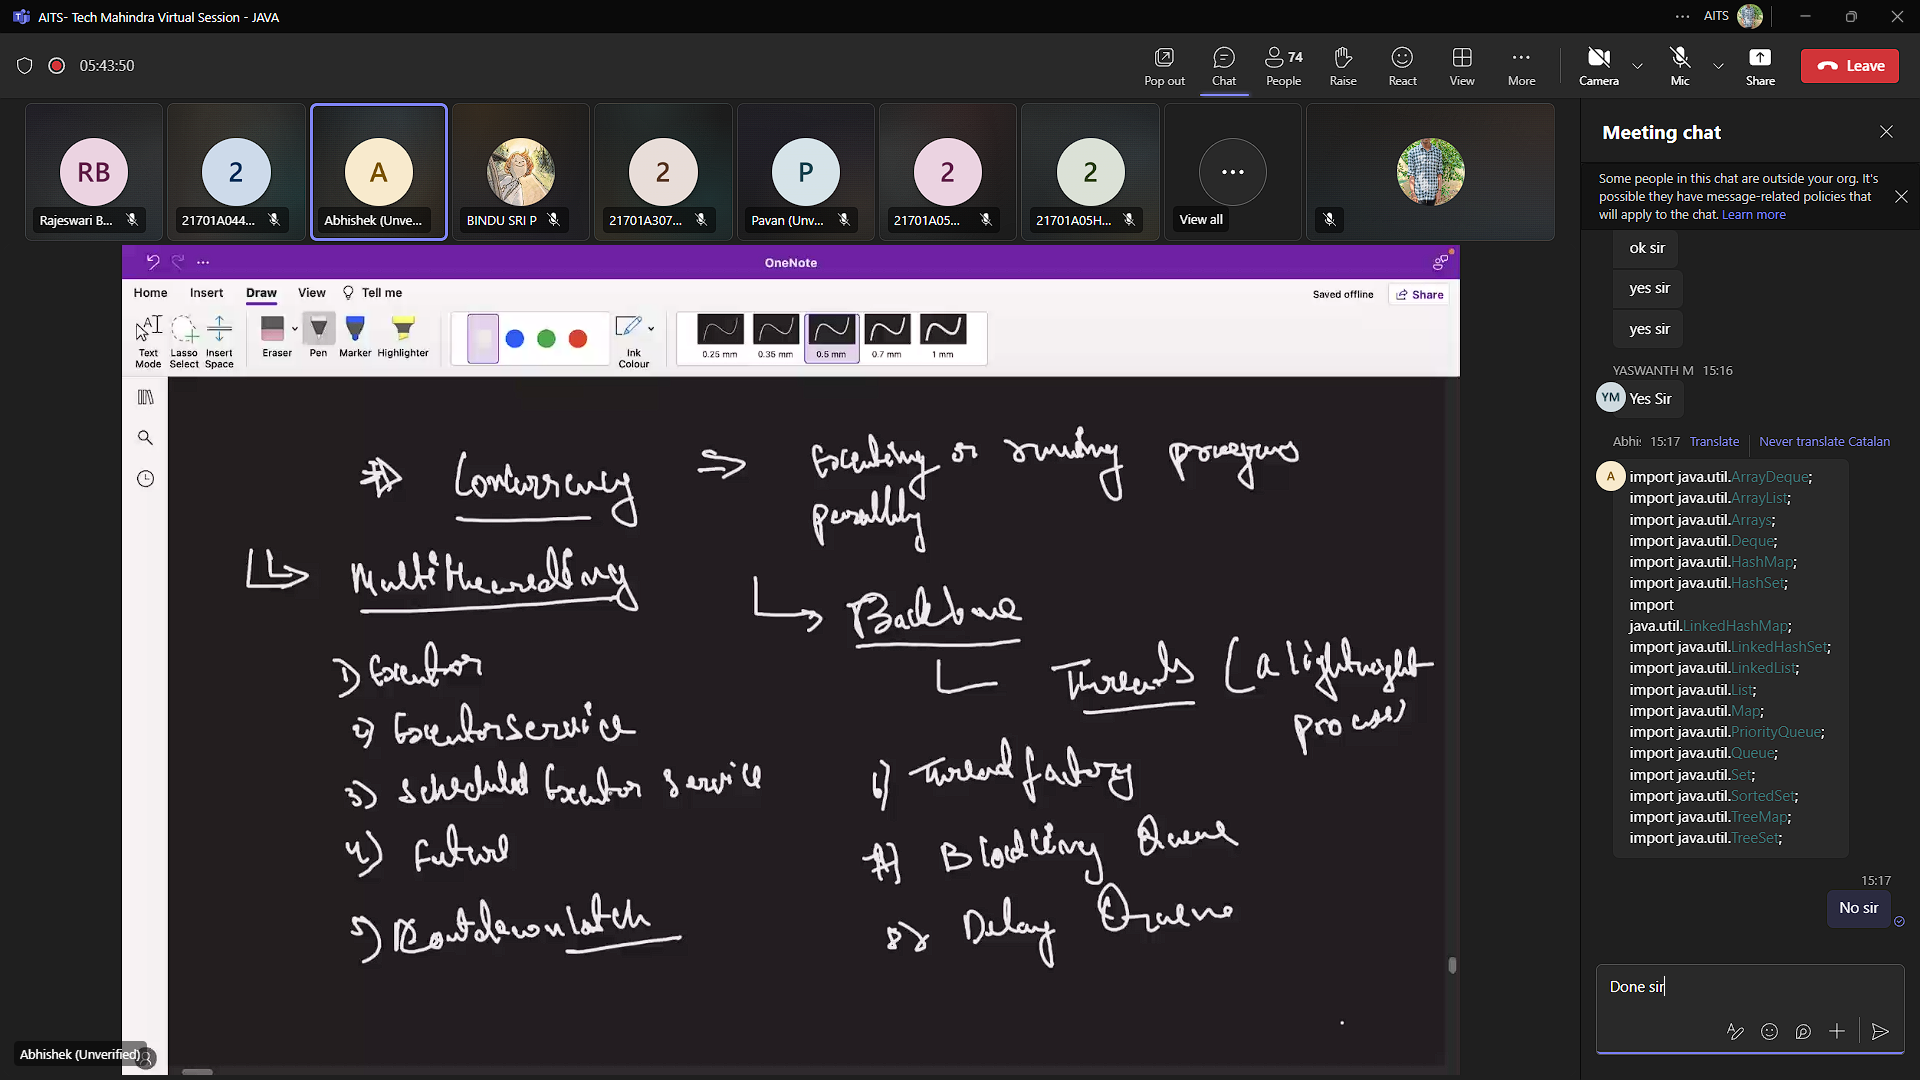 AITS- Tech Mahindra Virtual Session - JAVA
AITS
05:43:50
Pop out
Chat
74
People
Raise
React
View
More
Camera
Mic
Share
Leave
RB
Rajeswari B...
2
21701A044...
A
Abhishek (Unve...
BINDU SRI P
2
21701A307...
P
Pavan (Unv...
2
21701A05...
2
21701A05H...
View all
OneNote
Home Insert Draw View Tell me
Saved offline
Share
Text Mode
Lasso Select
Insert Space
Eraser
Pen
Marker
Highlighter
Ink Colour
0.25 mm
0.35 mm
0.5 mm
0.7 mm
1 mm
Concurrency => Executing or running programs
parallely
Multithreading
Backbone
Threads (a lightweight
process)
1) Executor
2) Executorservice
3) Scheduled Executor Service
4) Future
5) Countdownlatch
6) Threadfactory
7) Blocking Queue
8) Delay Queue
Abhishek (Unverified)
Meeting chat
Some people in this chat are outside your org. It's
possible they have message-related policies that
will apply to the chat. Learn more
ok sir
yes sir
yes sir
YASWANTH M 15:16
YM
Yes Sir
Abhi: 15:17 Translate Never translate Catalan
A
import java.util.ArrayDeque;
import java.util.ArrayList;
import java.util.Arrays;
import java.util.Deque;
import java.util.HashMap;
import java.util.HashSet;
import
java.util.LinkedHashMap;
import java.util.LinkedHashSet;
import java.util.LinkedList;
import java.util.List;
import java.util.Map;
import java.util.PriorityQueue;
import java.util.Queue;
import java.util.Set;
import java.util.SortedSet;
import java.util.TreeMap;
import java.util.TreeSet;
15:17
No sir
Done sir